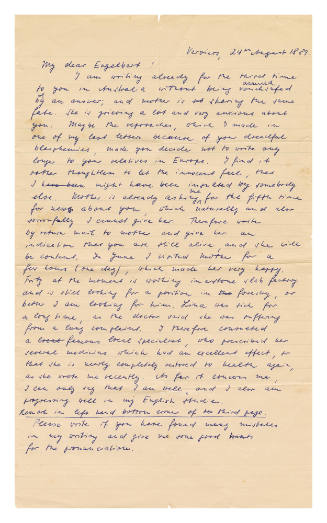 Verviers, 21st August 1889
My dear Engelbert!
I am writing already for the third time
to you in Australia without being vouchsafed
by an answer, and mother is sharing the same
fate. She is grieving a lot and very anxious about
you. Maybe the reproaches, which I made in
one of my last letters because of your dreadful
blasphemies made you decide not to write any
longer to your relatives in Europe. I find it
rather thoughtless to let the innocent feel, that
I have been might have been inspired by somebody
else. Mother is already asking me for the fifth time
for news about you, which naturally and also
sorrowfully I cannot give her. Therefore write
by return mail to mother and give her an
indication that you are still alive and she will
be content. In June I visited mother for a
few hours (one day), which made her very happy.
Fritz at the moment is working in a
and is still looking for a position, in forestry, or
better I am looking for him. Lina was sick for
a long time, as the doctor said she was suffering
from a lung complaint. I therefore consulted
a famous local specialist, who prescribed her
several medicines which had an excellent effect, so
that she is nearly completely restored to health again,
as she wrote me recently. As far it concerns me,
I can only say that I am well, and I also am
progressing well in my English studies.
Remark in left hand bottom corner of the third page:
Please write if you have found many mistakes
in my writing and give me some good hints
for the pronunciation.